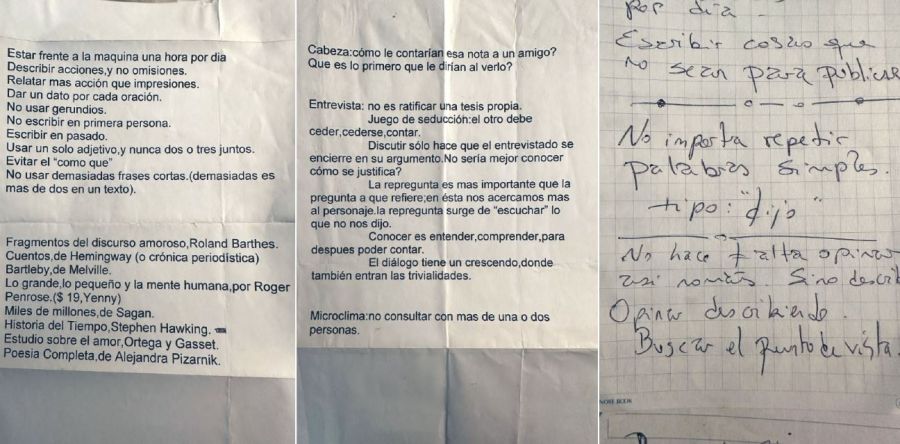 Estar frente a la maquina una hora por dia
Describir acciones,y no omisiones.
Relatar mas acción que impresiones.
Dar un dato por cada oración.
No usar gerundios.
No escribir en primera persona.
Escribir en pasado.
Usar un solo adjetivo,y nunca dos o tres juntos.
Evitar el "como que"
No usar demasiadas frases cortas.(demasiadas es
mas de dos en un texto).
Fragmentos del discurso amoroso,Roland Barthes.
Cuentos,de Hemingway (o crónica periodística)
Bartleby,de Melville.
Lo grande,lo pequeño y la mente humana,por Roger
Penrose.($ 19,Yenny)
Miles de millones,de Sagan.
Historia del Tiempo,Stephen Hawking.
Estudio sobre el amor,Ortega y Gasset.
Poesia Completa,de Alejandra Pizarnik.
Cabeza:cómo le contarían esa nota a un amigo?
Que es lo primero que le dirían al verlo?
Entrevista: no es ratificar una tesis propia.
Juego de seducción:el otro debe
ceder,cederse,contar.
Discutir sólo hace que el entrevistado se
encierre en su argumento.No sería mejor conocer
cómo se justifica?
La repregunta es mas importante que la
pregunta a que refiere;en ésta nos acercamos mas
al personaje.la repregunta surge de "escuchar" lo
que no nos dijo.
Conocer es entender,comprender,para
despues poder contar.
El diálogo tiene un crescendo,donde
también entran las trivialidades.
Microclima:no consultar con mas de una o dos
personas.
por dia
Escribir cosas que
no sean para publicar
No importa repetir
palabras simples.
tipo: "dijo"
No hace falta opinar
asi nomás. Sino describ
Opinar describiendo.
Buscar el punto de vista.
NOTE BOOK